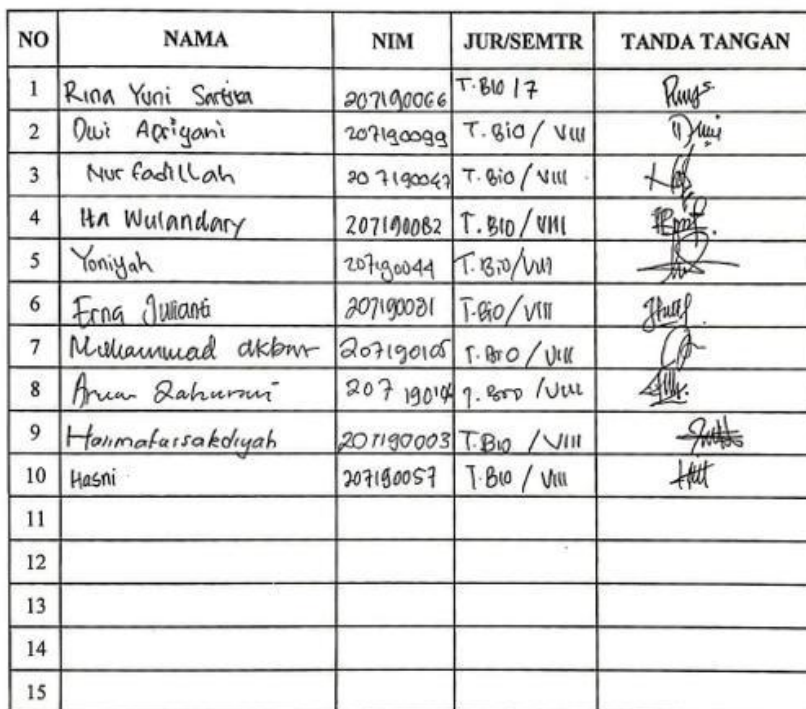 NO NAMA NIM JUR/SEMTR TANDA TANGAN
1 Rina Yuni Sartika 207190066 T.BIO / 7
2 Dwi Apriyani 207190099 T.Bio / VIII
3 Nur fadillah 207190047 T.Bio / VIII
4 Ita Wulandary 207190082 T.BIO / VIII
5 Yoniyah 207190044 T.Bio/VIII
6 Erna Julianti 207190031 T.BiO/VIII
7 Muhammad akbar 207190105 T.BIO / VIII
8 207190104 T.BIO / VIII
9 Halimatussakdiyah 207190003 T.Bio / VIII
10 Hasni 207190057 T.Bio / VIII
11
12
13
14
15